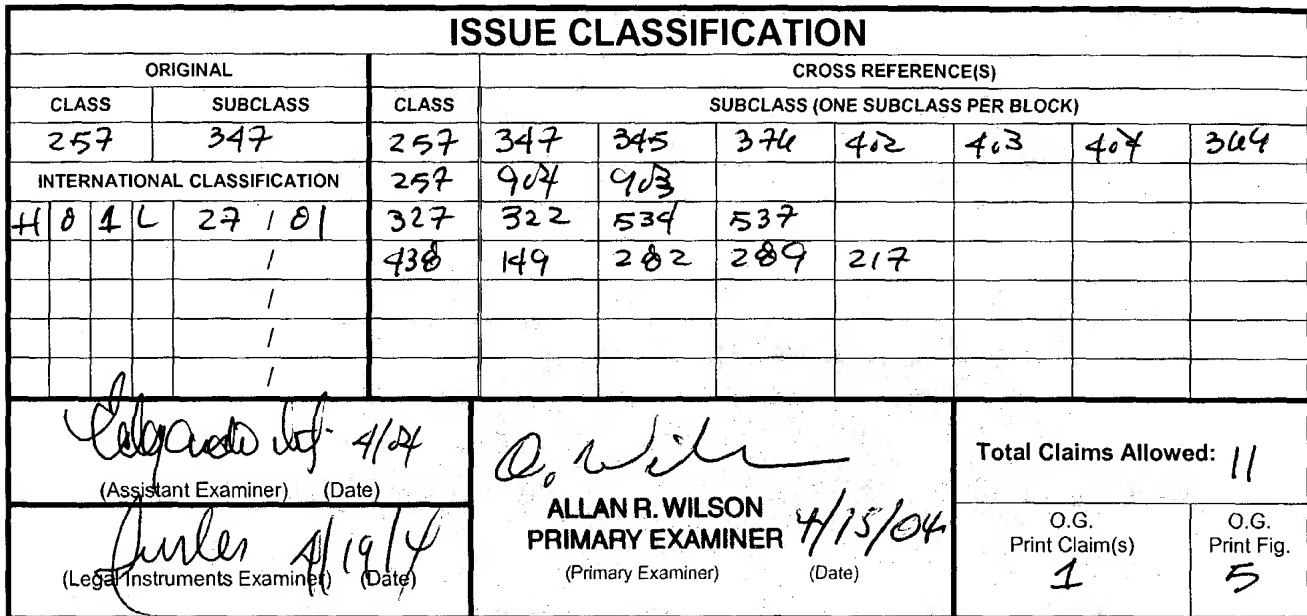 ISSUE CLASSIFICATION
ORIGINAL CROSS REFERENCE(S)
CLASS SUBCLASS CLASS SUBCLASS (ONE SUBCLASS PER BLOCK)
257 347 257 347 345 376 402 403 404 364
INTERNATIONAL CLASSIFICATION 257 904 903
H 0 1 L 27 / 01 327 322 534 537
/ 438 149 282 289 217
/
/
/
4/04
(Assistant Examiner) (Date)
4/19/4
(Legal Instruments Examiner) (Date)
ALLAN R. WILSON
PRIMARY EXAMINER 4/15/04
(Primary Examiner) (Date)
Total Claims Allowed: 11
O.G.
Print Claim(s)
1
O.G.
Print Fig.
5